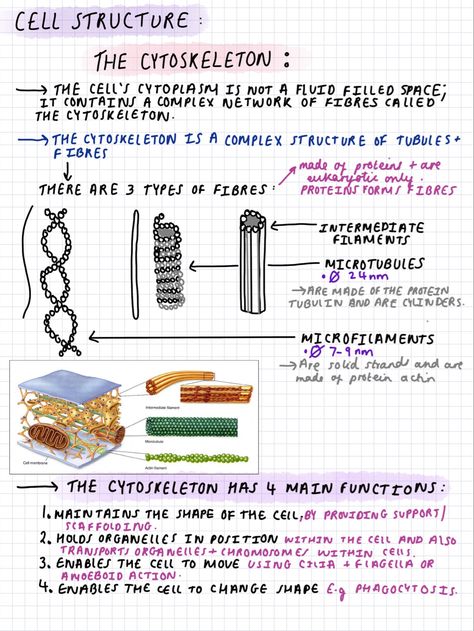 CELL STRUCTURE :
THE CYTOSKELETON :
→ THE CELL'S CYTOPLASM IS NOT A FLUID FILLED SPACE;
IT CONTAINS A COMPLEX NETWORK OF FIBRES CALLED
THE CYTOSKELETON.
→ THE CYTOSKELETON IS A COMPLEX STRUCTURE OF TUBULES +
FIBRES
made of proteins + are
eukaryotic only.
THERE ARE 3 TYPES OF FIBRES:
PROTEINS FORMS FIBRES
INTERMEDIATE
FILAMENTS
MICROTUBULES
• Ø 24nm
→ ARE MADE OF THE PROTEIN
TUBULIN AND ARE CYLINDERS.
MICROFILAMENTS
• Ø 7-9nm
→ Are solid strands and are
made of protein actin
Intermediate filament
Microtubule
Cell membrane
Actin filament
→ THE CYTOSKELETON HAS 4 MAIN FUNCTIONS:
1. MAINTAINS THE SHAPE OF THE CELL, BY PROVIDING SUPPORT/
SCAFFOLDING.
2. HOLDS ORGANELLES IN POSITION WITHIN THE CELL AND ALSO
TRANSPORTS ORGANELLES + CHROMOSOMES WITHIN CELLS.
3. ENABLES THE CELL TO MOVE USING CILIA + FLAGELLA OR
AMOEBOID ACTION.
4. ENABLES THE CELL TO CHANGE SHAPE E.g PHAGOCYTOSIS.